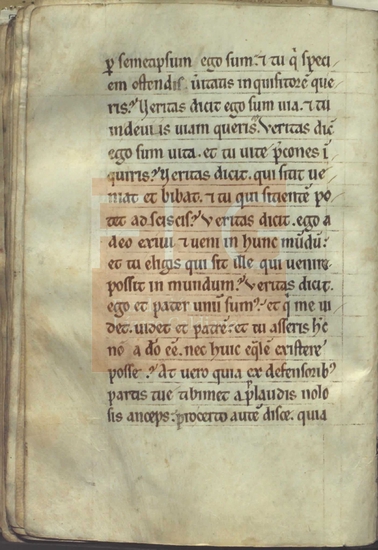 ꝑ semetipsum ego sum. ⁊ tu q̇ speci
em ostendis. ủitatis inquisitorē que
ris? Veritas dicit ego sum uia. ⁊ tu
indeuiis uiam queris. Veritas dic̄
ego sum uita. et tu uite p̄cones ī
quiris? Veritas dicit. qui sitit ue
niat et bibat. ⁊ tu qui sitientē po
tet adsciscis? Veritas dicit. ego a
deo exiui ⁊ ueni in hunc mūdū.
et tu eligis qui sit ille qui uenire
possit in mundum? Veritas dicit.
ego et pater unū sum? et q̇ me ui
det. uidet et patrē. et tu asseris hc̄
nō a dō eē. nec huic eq̄lē existere
posse? At uero quia ex defensorib;
partis tue tibimet applaudis nolo
sis anceps. procerto autē disce. quia